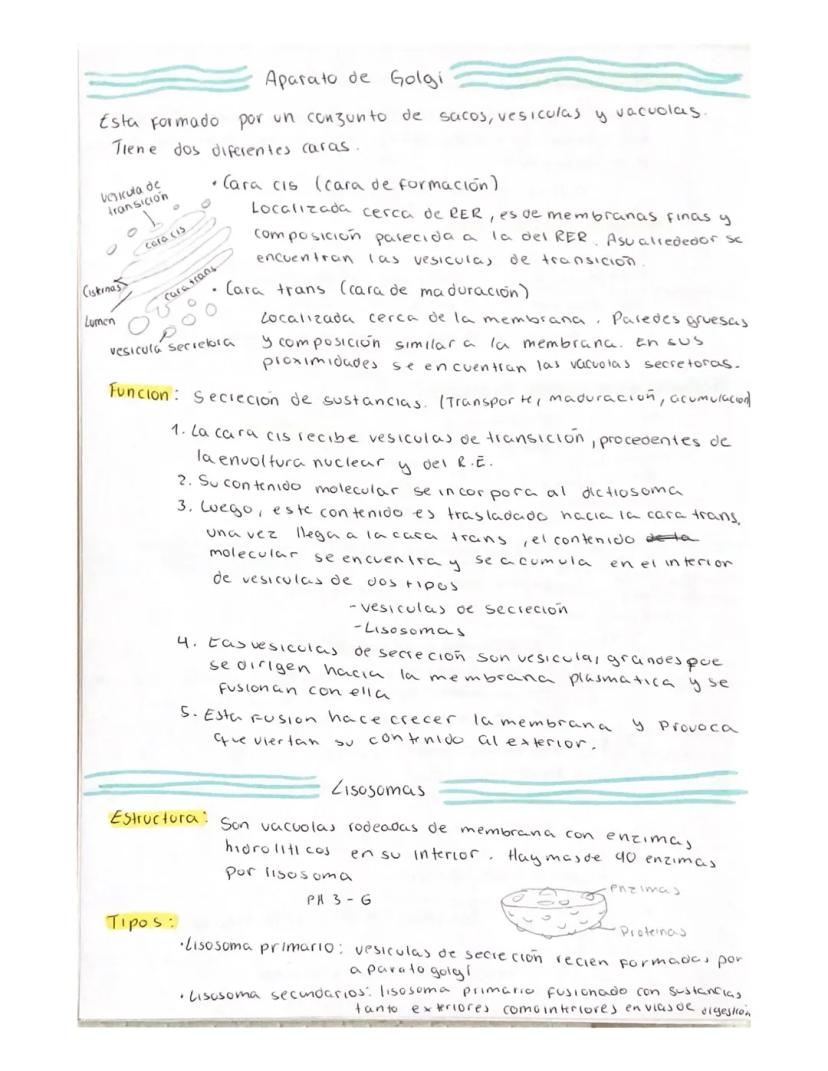 Aparato de Golgi
Esta formado por un conjunto de sacos, vesiculas y vacuolas.
Tiene dos diferentes caras.
vesicula de
transición
cara cis
Cisternas
cara trans
Lumen
vesicula secretora
• Cara cis (cara de formación)
Localizada cerca de RER, es de membranas finas y
composición parecida a la del RER. A su alrededor se
encuentran las vesiculas de transición.
• Cara trans (cara de maduración)
Localizada cerca de la membrana. Paredes gruesas
y composición similar a la membrana. En sus
proximidades se encuentran las vacuolas secretoras.
Funcion: Secreción de sustancias. (Transporte, maduración, acumulacion)
1. La cara cis recibe vesiculas de transición, procedentes de
la envoltura nuclear y del R.E.
2. Su contenido molecular se incorpora al dictiosoma
3. Luego, este contenido es trasladado hacia la cara trans,
una vez llega a la cara trans, el contenido de la
molecular se encuentra y se acumula en el interior
de vesiculas de dos tipos
- vesiculas de secreción
- Lisosomas
4. Las vesiculas de secreción son vesiculas grandes que
se dirigen hacia la membrana plasmatica y se
fusionan con ella
5. Esta fusion hace crecer la membrana y provoca
que viertan su contenido al exterior.
Lisosomas
Estructura: Son vacuolas rodeadas de membrana con enzimas
hidroliticos en su interior. Hay mas de 40 enzimas
por lisosoma
PH 3 - 6
enzimas
Proteinas
Tipos:
• Lisosoma primario: vesiculas de secreción recien formadas por
aparato golgi
• Lisosoma secundarios: lisosoma primario fusionado con sustancias
tanto exteriores como interiores en vias de digestión